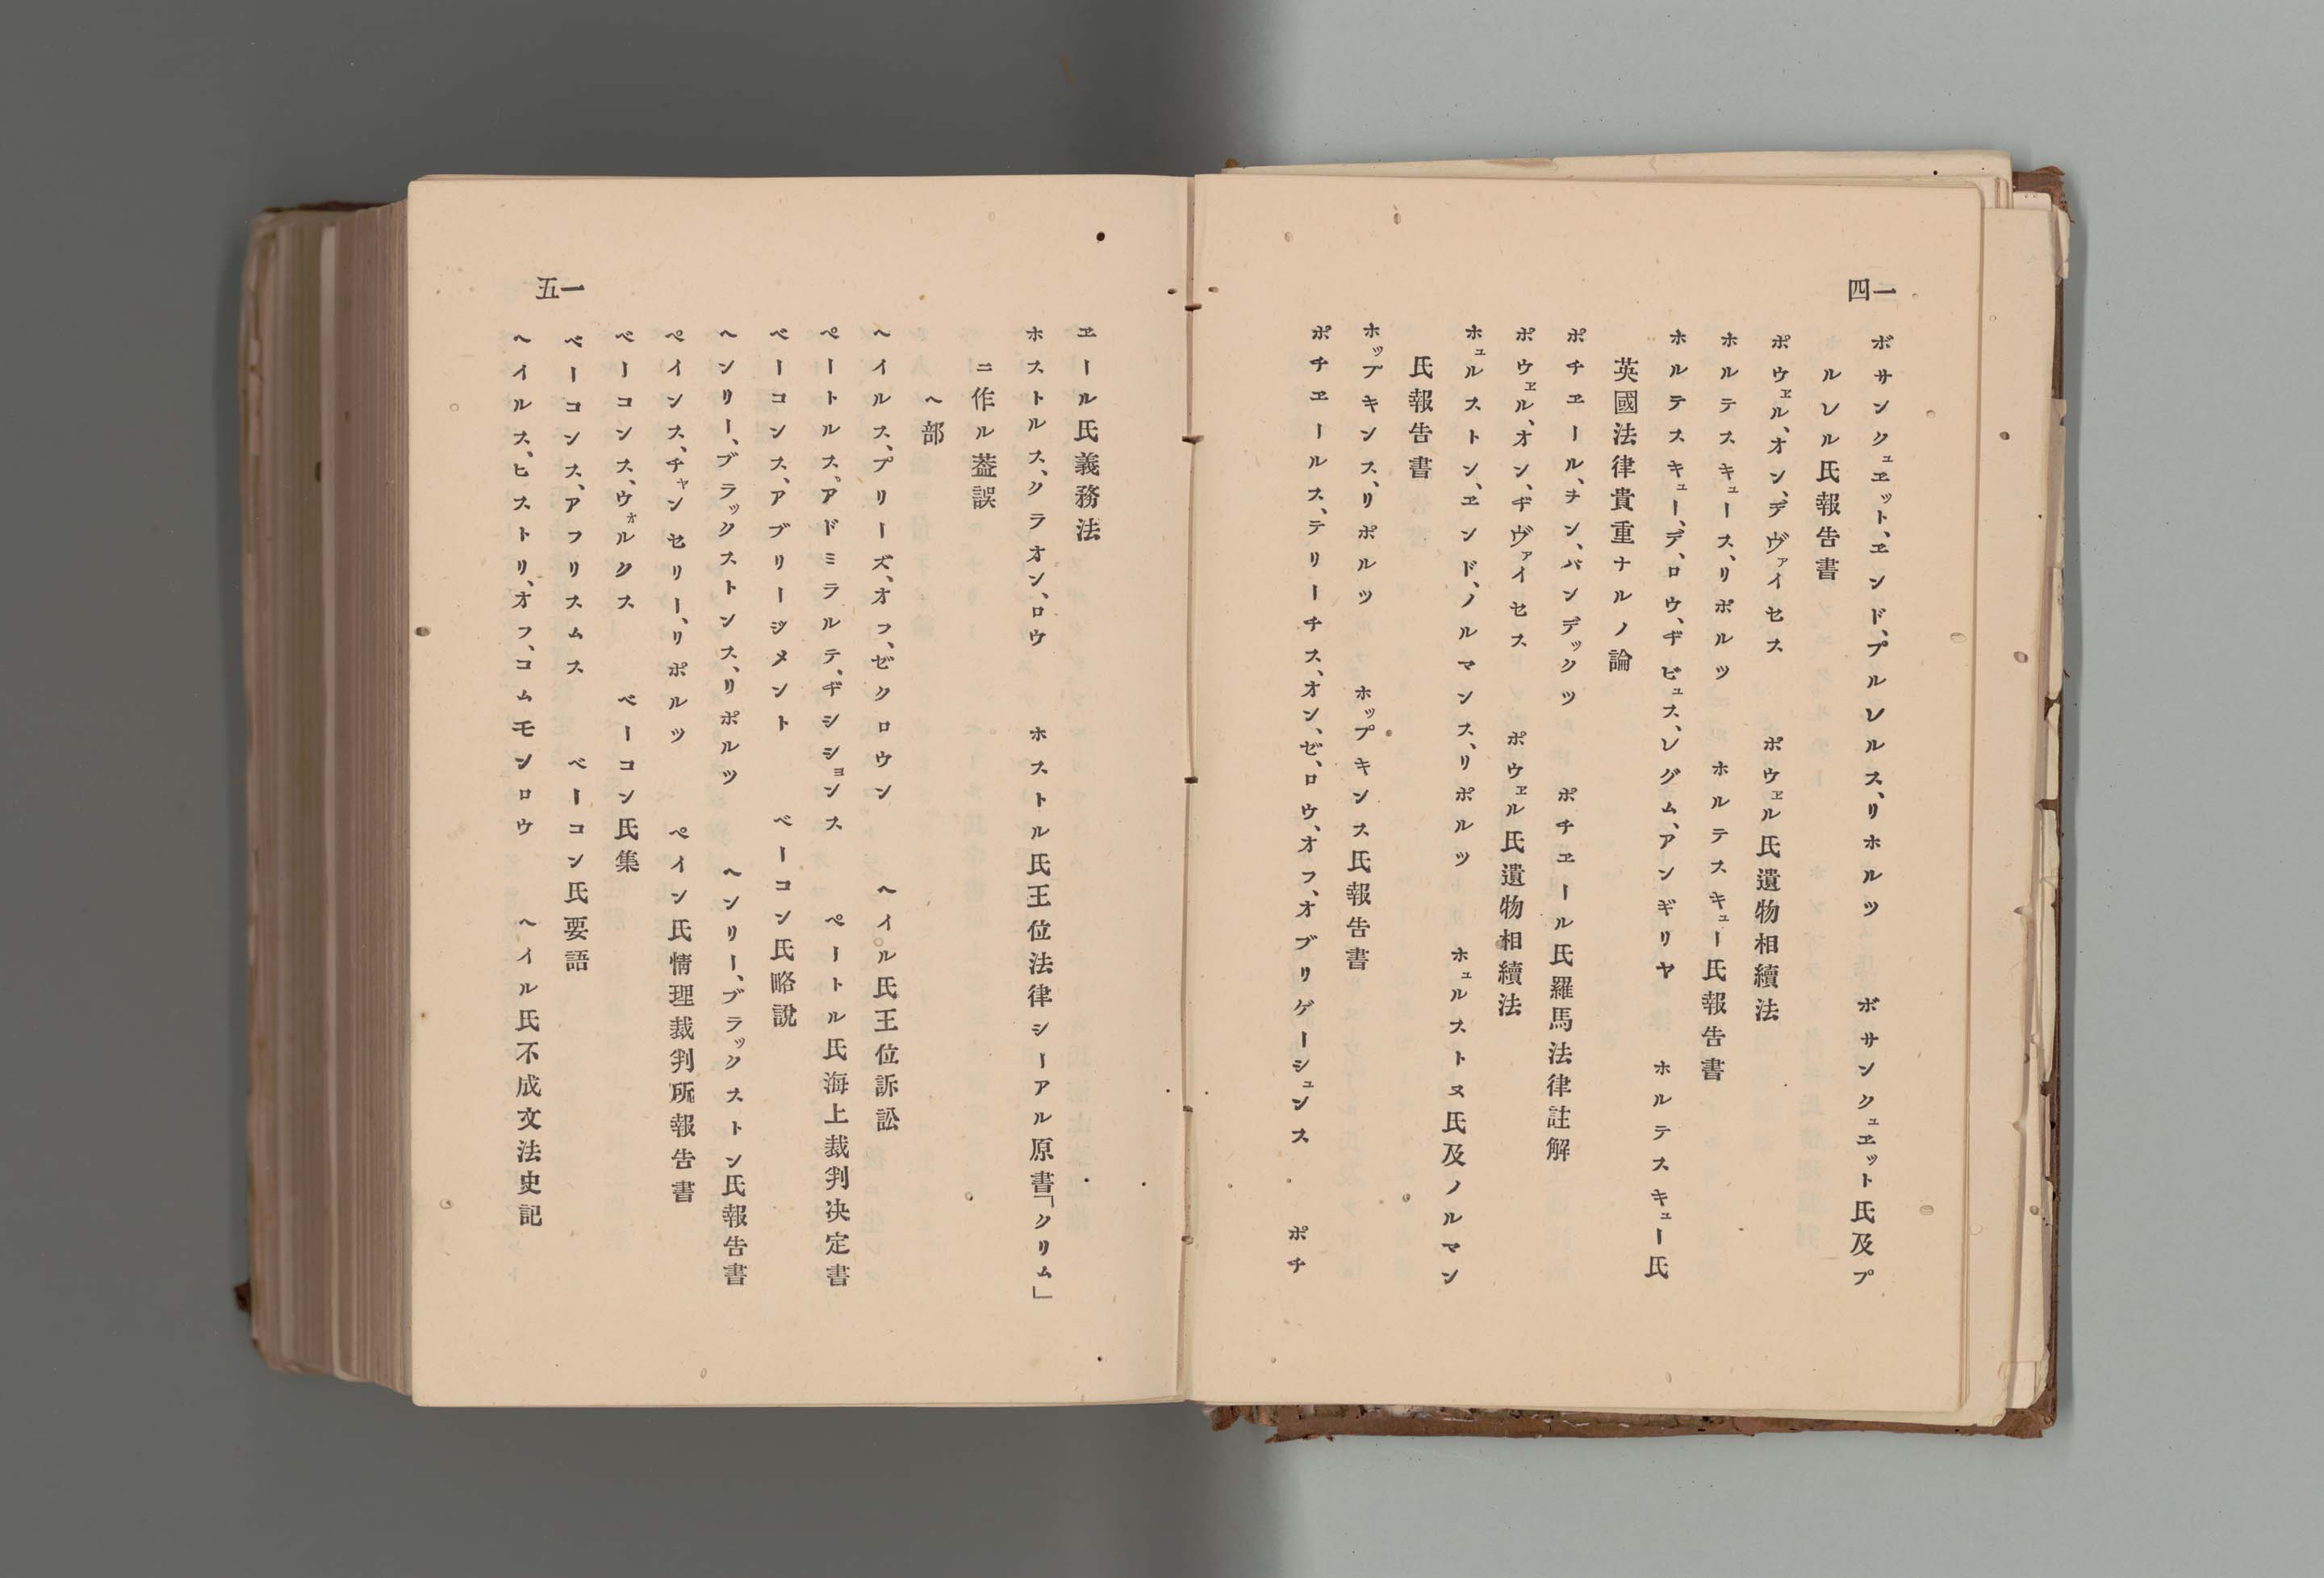 一四
ボサンクュヱット、ヱンド、プルレルス、リホルツ　ボサンクュヱット氏及プ
ルレル氏報告書
ポウヱル、オン、デヴァイセス　ポウヱル氏遺物相續法
ホルテスキュース、リポルツ　ホルテスキュー氏報告書
ホルテスキュー、デ、ロウ、ヂビュス、レグム、アンギリヤ　ホルテスキュー氏
英國法律貴重ナルノ論
ポチヱール、ヂン、パンデックツ　ポチヱール氏羅馬法律註解
ポウヱル、オン、ヂヴァイセス　ポウヱル氏遺物相續法
ホュルストン、ヱンド、ノルマンス、リポルツ　ホュルストヌ氏及ノルマン
氏報告書
ホップキンス、リポルツ　ホップキンス氏報告書
ポチヱールス、テリーチス、オン、ゼ、ロウ、オフ、オブリゲーシュンス　ポチ
一五
ヱール氏義務法
ホストルス、クラオン、ロウ　ホストル氏王位法律シーアル原書「クリム」
ニ作ル葢誤
ヘ部
ヘイルス、プリーズ、オフ、ゼクロウン　ヘイル氏王位訴訟
ペートルス、アドミラルテ、ヂシションス　ペートル氏海上裁判决定書
ベーコンス、アブリージメント　ベーコン氏略說
ヘンリー、ブラックストンス、リポルツ　ヘンリー、ブラックストン氏報告書
ペインス、チャンセリー、リポルツ　ペイン氏情理裁判所報告書
ベーコンス、ウォルクス　ベーコン氏集
ベーコンス、アフリスムス　ベーコン氏要語
ヘイルス、ヒストリ、オフ、コムモンロウ　ヘイル氏不成文法史記